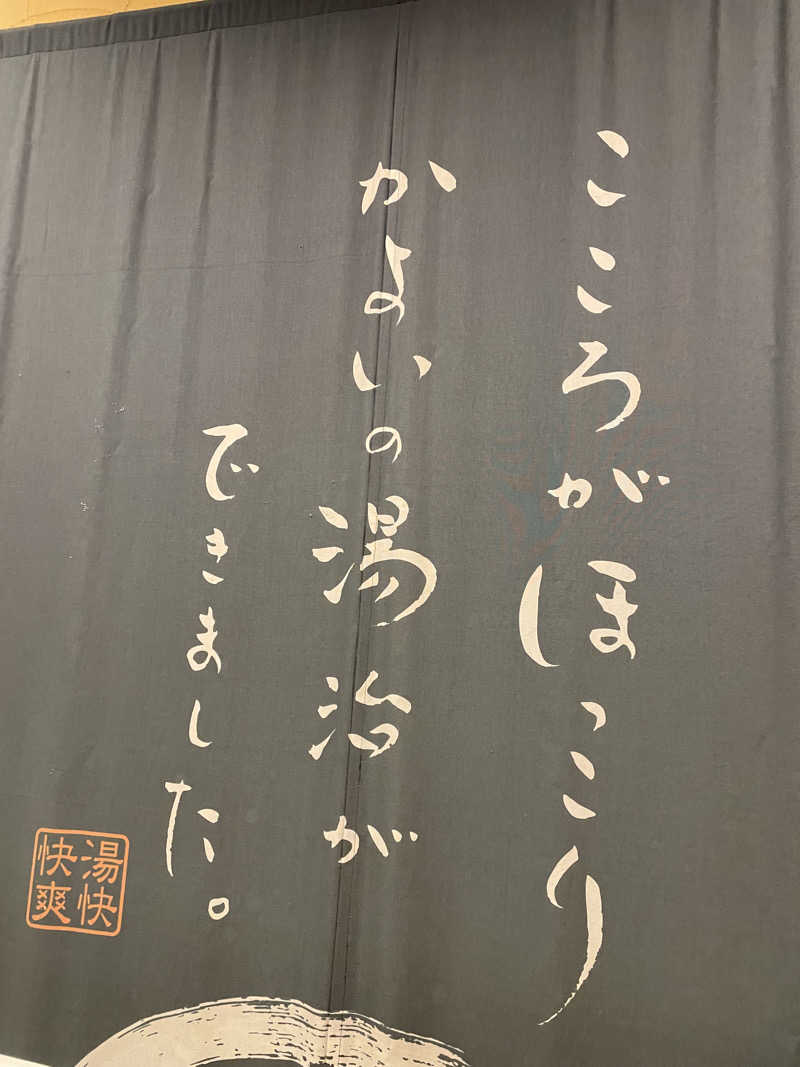 こころがほっこり
かよいの湯治が
できました。
湯快
快爽